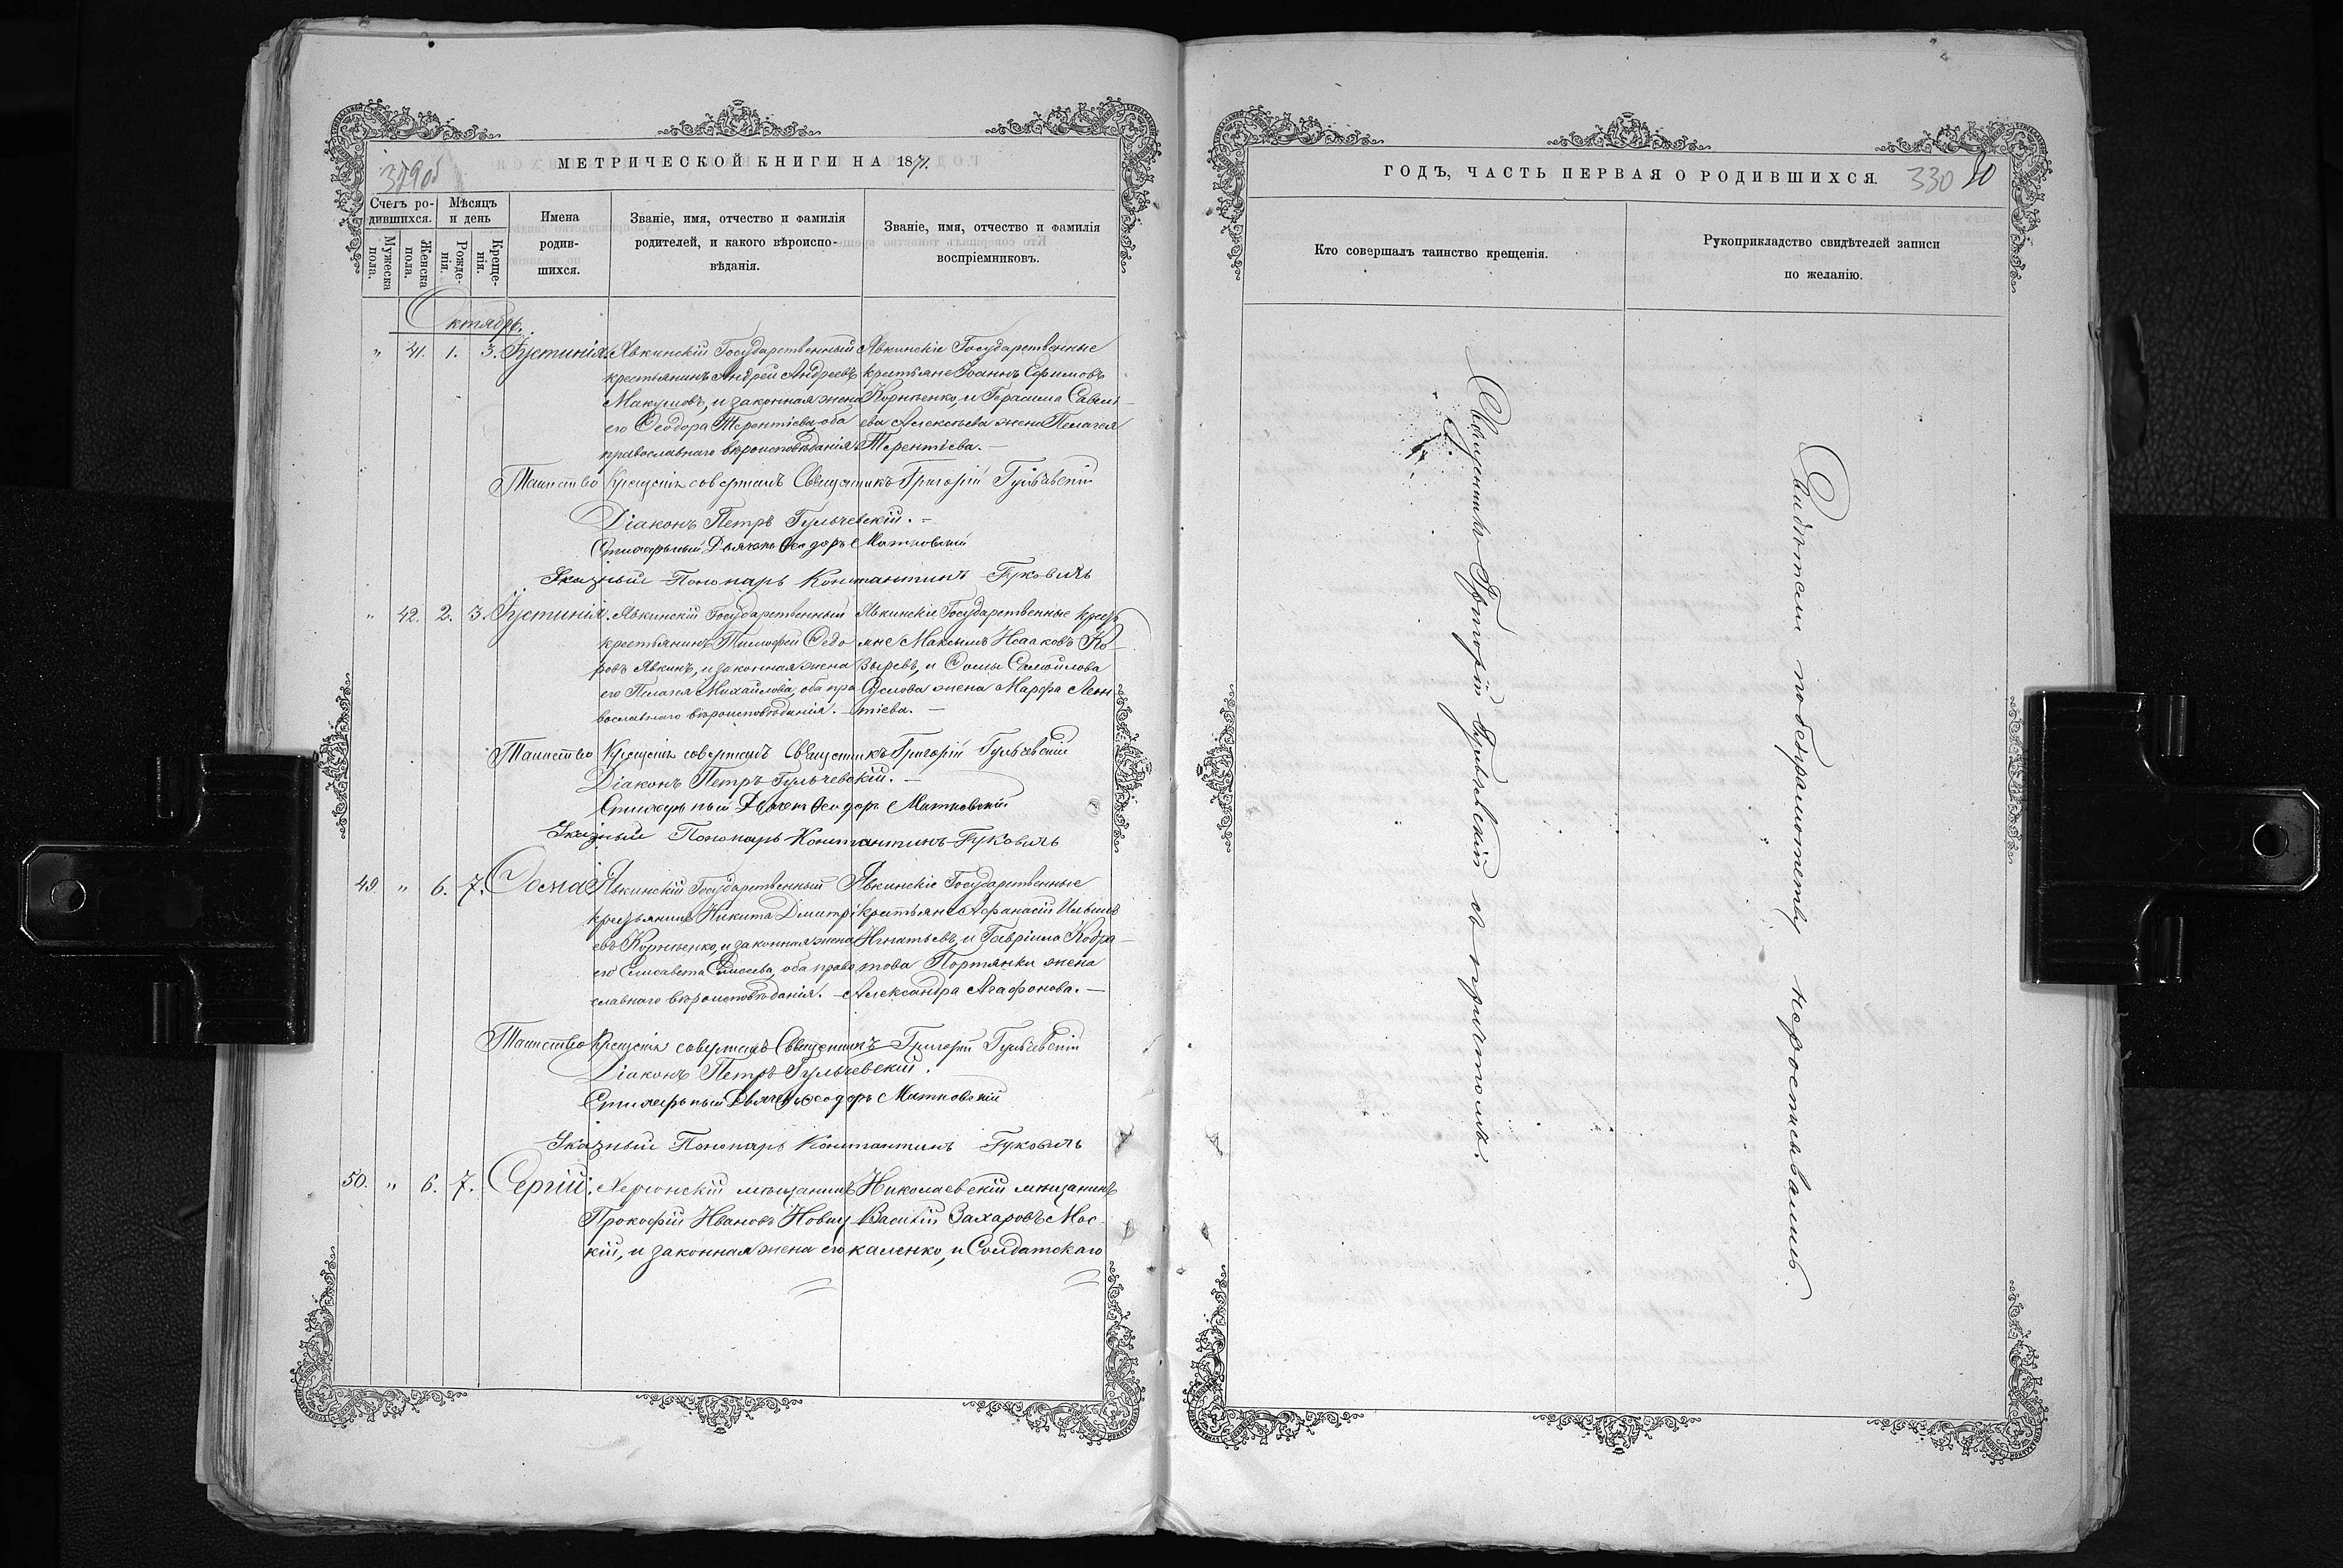 МЕТРИЧЕСКОЙ КНИГИ НА 1871.
Счетъ ро-
дившихся.
Мужеска
пола.
Женска
пола.
Мѣсяцъ
и день
Рожде-
нія.
Креще-
нія.
Имена
родив-
шихся.
Званіе, имя, отчество и фамилія
родителей, и какого вѣроиспо-
вѣданія.
Званіе, имя, отчество и фамилія
воспріемниковъ.
Октябрь.
" 41. 1. 3. Іустинія.
Явкинскій Государственный
крестьянинъ Андрей Андреевъ
Макумовъ, и законная жена
его Ѳеодора Терентіева, оба
православнаго вѣроисповѣданія.
Явкинскіе Государственные
крестьяне Іоаннъ Ефимовъ
Корніенко, и Герасима Савель-
ева Алексѣева жена Пелагея
Терентіева. —
Таинство Крещенія совершалъ Священникъ Григорій Гульчевскій
Діаконъ Петръ Гульчевскій. –
Стихарный Дьячекъ Ѳеодоръ Матковскій
Указный Пономарь Константинъ Гуковичъ
" 42. 2. 3. Іустинія.
Явкинскій Государственный
крестьянинъ Тимофей Ѳедо
ровъ Явкинъ, и законная жена
его Пелагея Михайлова, оба пра
вославнаго вѣроисповѣданія. —
Явкинскіе Государственные крес
яне Максимъ Исааковъ Ко-
зыревъ, и Ѳомы Самойлова
Суслова жена Марѳа Леон
тіева. —
Таинство Крещенія совершалъ Священникъ Григорій Гульчевскій
Діаконъ Петръ Гульчевскій. —
Стихарный Дьячекъ Ѳеодоръ Матковскій
Указный Пономарь Константинъ Гуковичъ
49. " 6. 7. Ѳома
Явкинскій Государственный
крестьянинъ Никита Дмитрі
евъ Корніенко, и законная жена
его Елисавета Елисеева, оба право
славнаго вѣроисповѣданія. —
Явкинскіе Государственные
крестьяне Аѳанасій Ильинъ
Игнатьевъ, и Гавріила Кодра-
това Портянки жена
Александра Агафонова. —
Таинство Крещенія совершалъ Священникъ Григорій Гульчевскій
Діаконъ Петръ Гульчевскій.
Стихарный Дьячекъ Ѳеодоръ Матковскій
Указный Пономарь Константинъ Гуковичъ
50. " 6. 7. Сергій.
Херсонскій мѣщанинъ
Прокофій Ивановъ Новиц
кій, и законная жена его
Николаевскій мѣщанинъ
Василій Захаровъ Мос-
каленко, и Солдатскаго
ГОДЪ, ЧАСТЬ ПЕРВАЯ О РОДИВШИХСЯ.
330 80
Кто совершалъ таинство крещенія.
Рукоприкладство свидѣтелей записи
по желанію.
Священникъ Григорій Гульчевскій съ причтомъ.
Свидѣтели по безграмотству не росписывались.